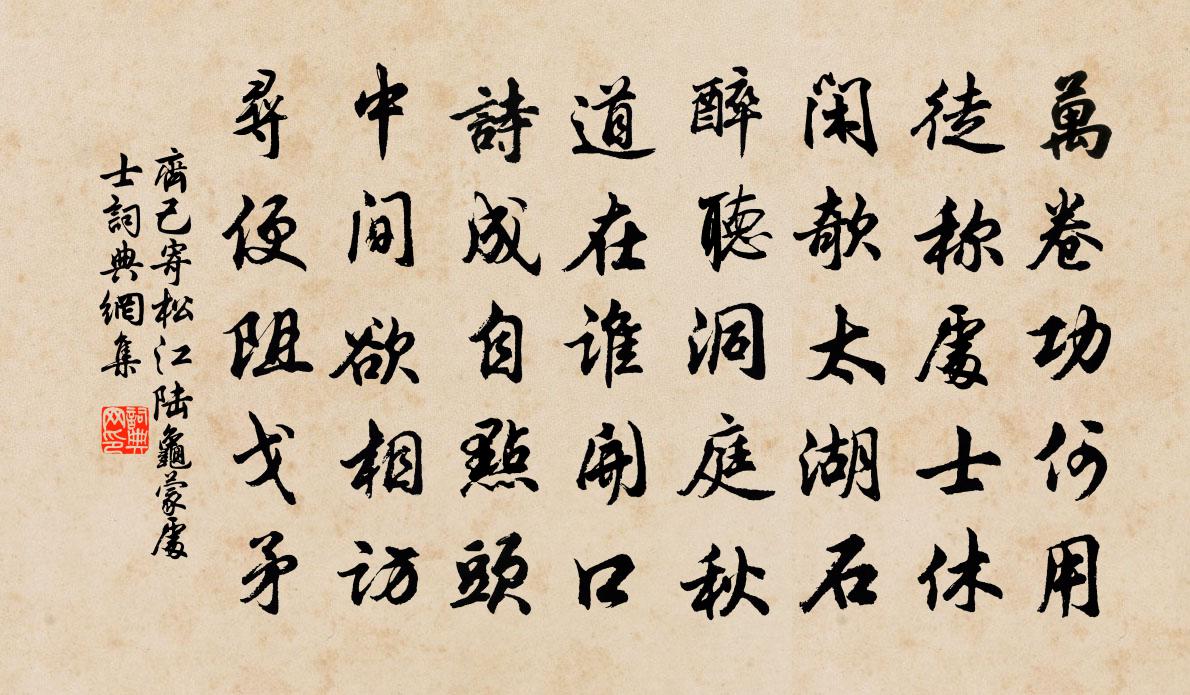 萬卷功何用
徒称處士休
閑欹太湖石
醉聽洞庭秋
道在誰開口
詩成自點頭
中間欲相訪
尋便阻戈矛
齊己寄松江陸龜蒙處
士詞典網集
詞典网印